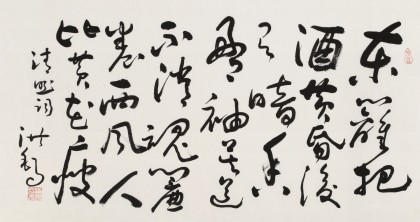 东籬把
酒黄昏後
有暗香
盈袖莫道
不消魂簾
卷西风人
比黄花瘦
清照词